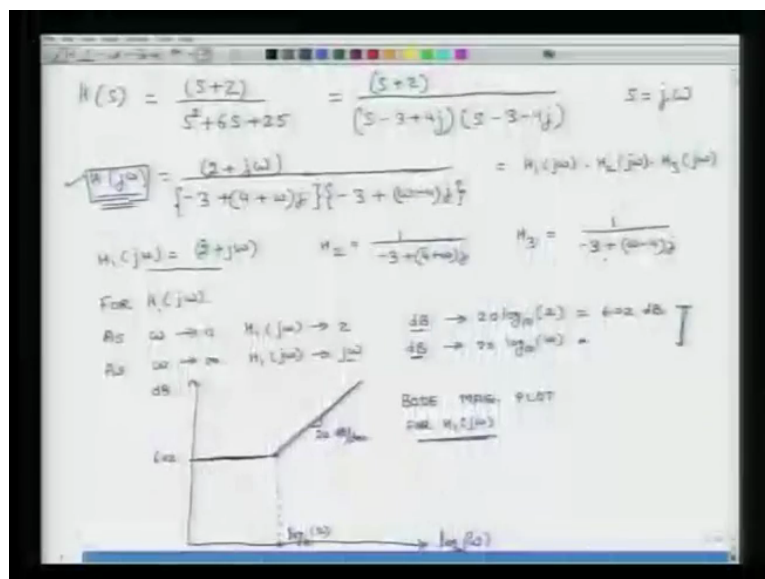 H(s) = (s+2) / s²+6s+25 = (s+2) / (s-3+4j)(s-3-4j) s=jω
H(jω) = (2+jω) / {-3+(4+ω)j}{-3+(ω-4)j} = H₁(jω)·H₂(jω)·H₃(jω)
H₁(jω) = (2+jω) H₂ = 1 / -3+(4+ω)j H₃ = 1 / -3+(ω-4)j
FOR H₁(jω)
As ω → 0 H₁(jω) → 2 dB → 20 log₁₀(2) = 6.02 dB
As ω → ∞ H₁(jω) → jω dB → 20 log₁₀(ω) =
dB
BODE MAG. PLOT
FOR H₁(jω)
20 dB/dec
6.02
log₁₀(2)
log₁₀(ω)